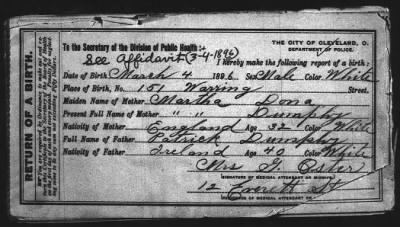 THE CITY OF CLEVELAND, O.
DEPARTMENT OF POLICE.
To the Secretary of the Division of Public Health:
See Affidavit (3-4-1896) I hereby make the following report of a birth:
Date of Birth March 4 1896 Sex Male Color White
Place of Birth, No. 151 Warring Street.
Maiden Name of Mother Martha Dona
Present Full Name of Mother " " Dumphy
Nativity of Mother England Age 32 Color White
Full Name of Father Patrick Dumphy
Nativity of Father Ireland Age 40 Color White
Mrs
(SIGNATURE OF MEDICAL ATTENDANT OR MIDWIFE.)
12 Everett St
RETURN OF A BIRTH.